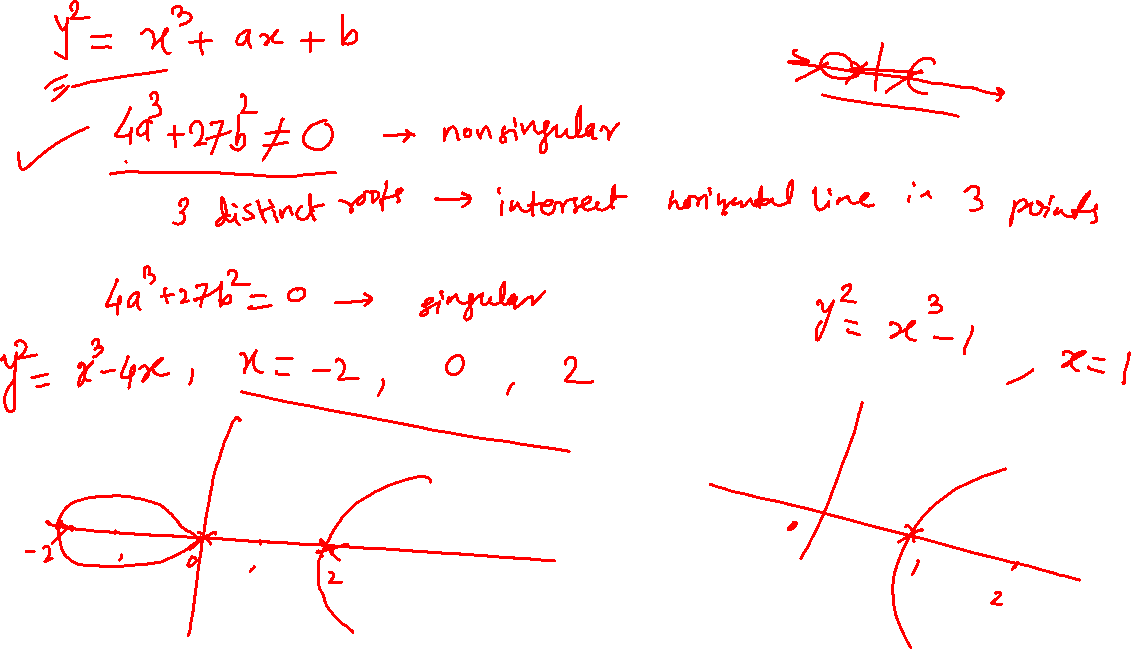 y² = x³ + ax + b
4a³ + 27b² ≠ 0 → nonsingular
3 distinct roots → intersect horizontal line in 3 points
4a³ + 27b² = 0 → singular
y² = x³ - 1 , x = 1
y² = x³ - 4x , x = -2 , 0 , 2
-2 0 2
0 1 2